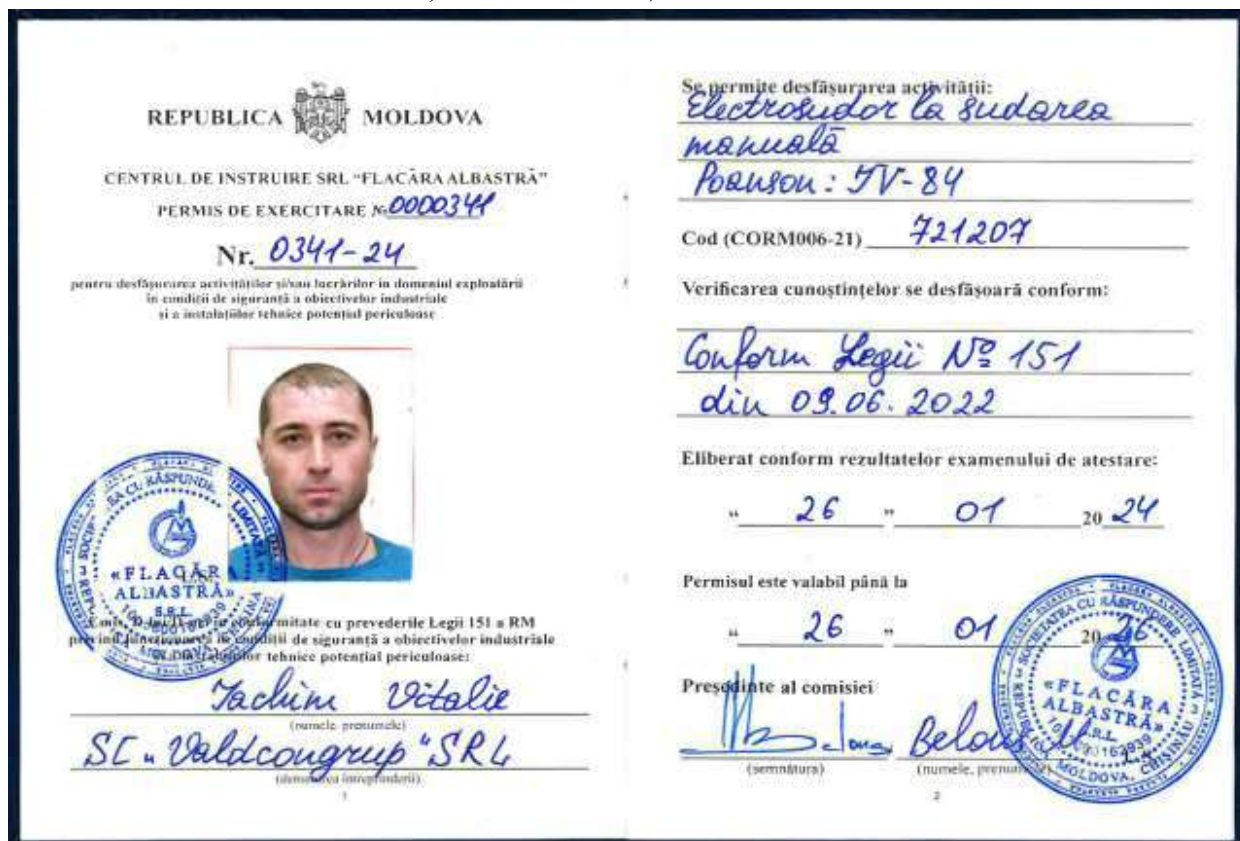 REPUBLICA MOLDOVA
CENTRUL DE INSTRUIRE SRL "FLACĂRA ALBASTRĂ"
PERMIS DE EXERCITARE № 0000341
Nr. 0341-24
pentru desfășurarea activităților și/sau lucrărilor în domeniul exploatării
în condiții de siguranță a obiectivelor industriale
și a instalațiilor tehnice potențial periculoase
SOCIETATEA CU RĂSPUNDERE LIMITATĂ
«FLACĂRA
ALBASTRĂ»
S.R.L.
conformitate cu prevederile Legii 151 a RM
privind funcționarea în condiții de siguranță a obiectivelor industriale
instalațiilor tehnice potențial periculoase:
Iachim Vitalie
(numele, prenumele)
SC "Valdcongrup" SRL
(denumirea întreprinderii)
1
Se permite desfășurarea activității:
Electrosudor la sudarea
manuală
Poanson: IV-84
Cod (CORM006-21) 721207
Verificarea cunoștințelor se desfășoară conform:
Conform Legii № 151
din 09.06.2022
Eliberat conform rezultatelor examenului de atestare:
" 26 " 01 20 24
Permisul este valabil până la
" 26 " 01 20 26
Președinte al comisiei
Belous
(semnătura) (numele, prenumele)
2
SOCIETATEA CU RĂSPUNDERE LIMITATĂ
«FLACĂRA
ALBASTRĂ»
S.R.L.
MOLDOVA, CHIȘINĂU